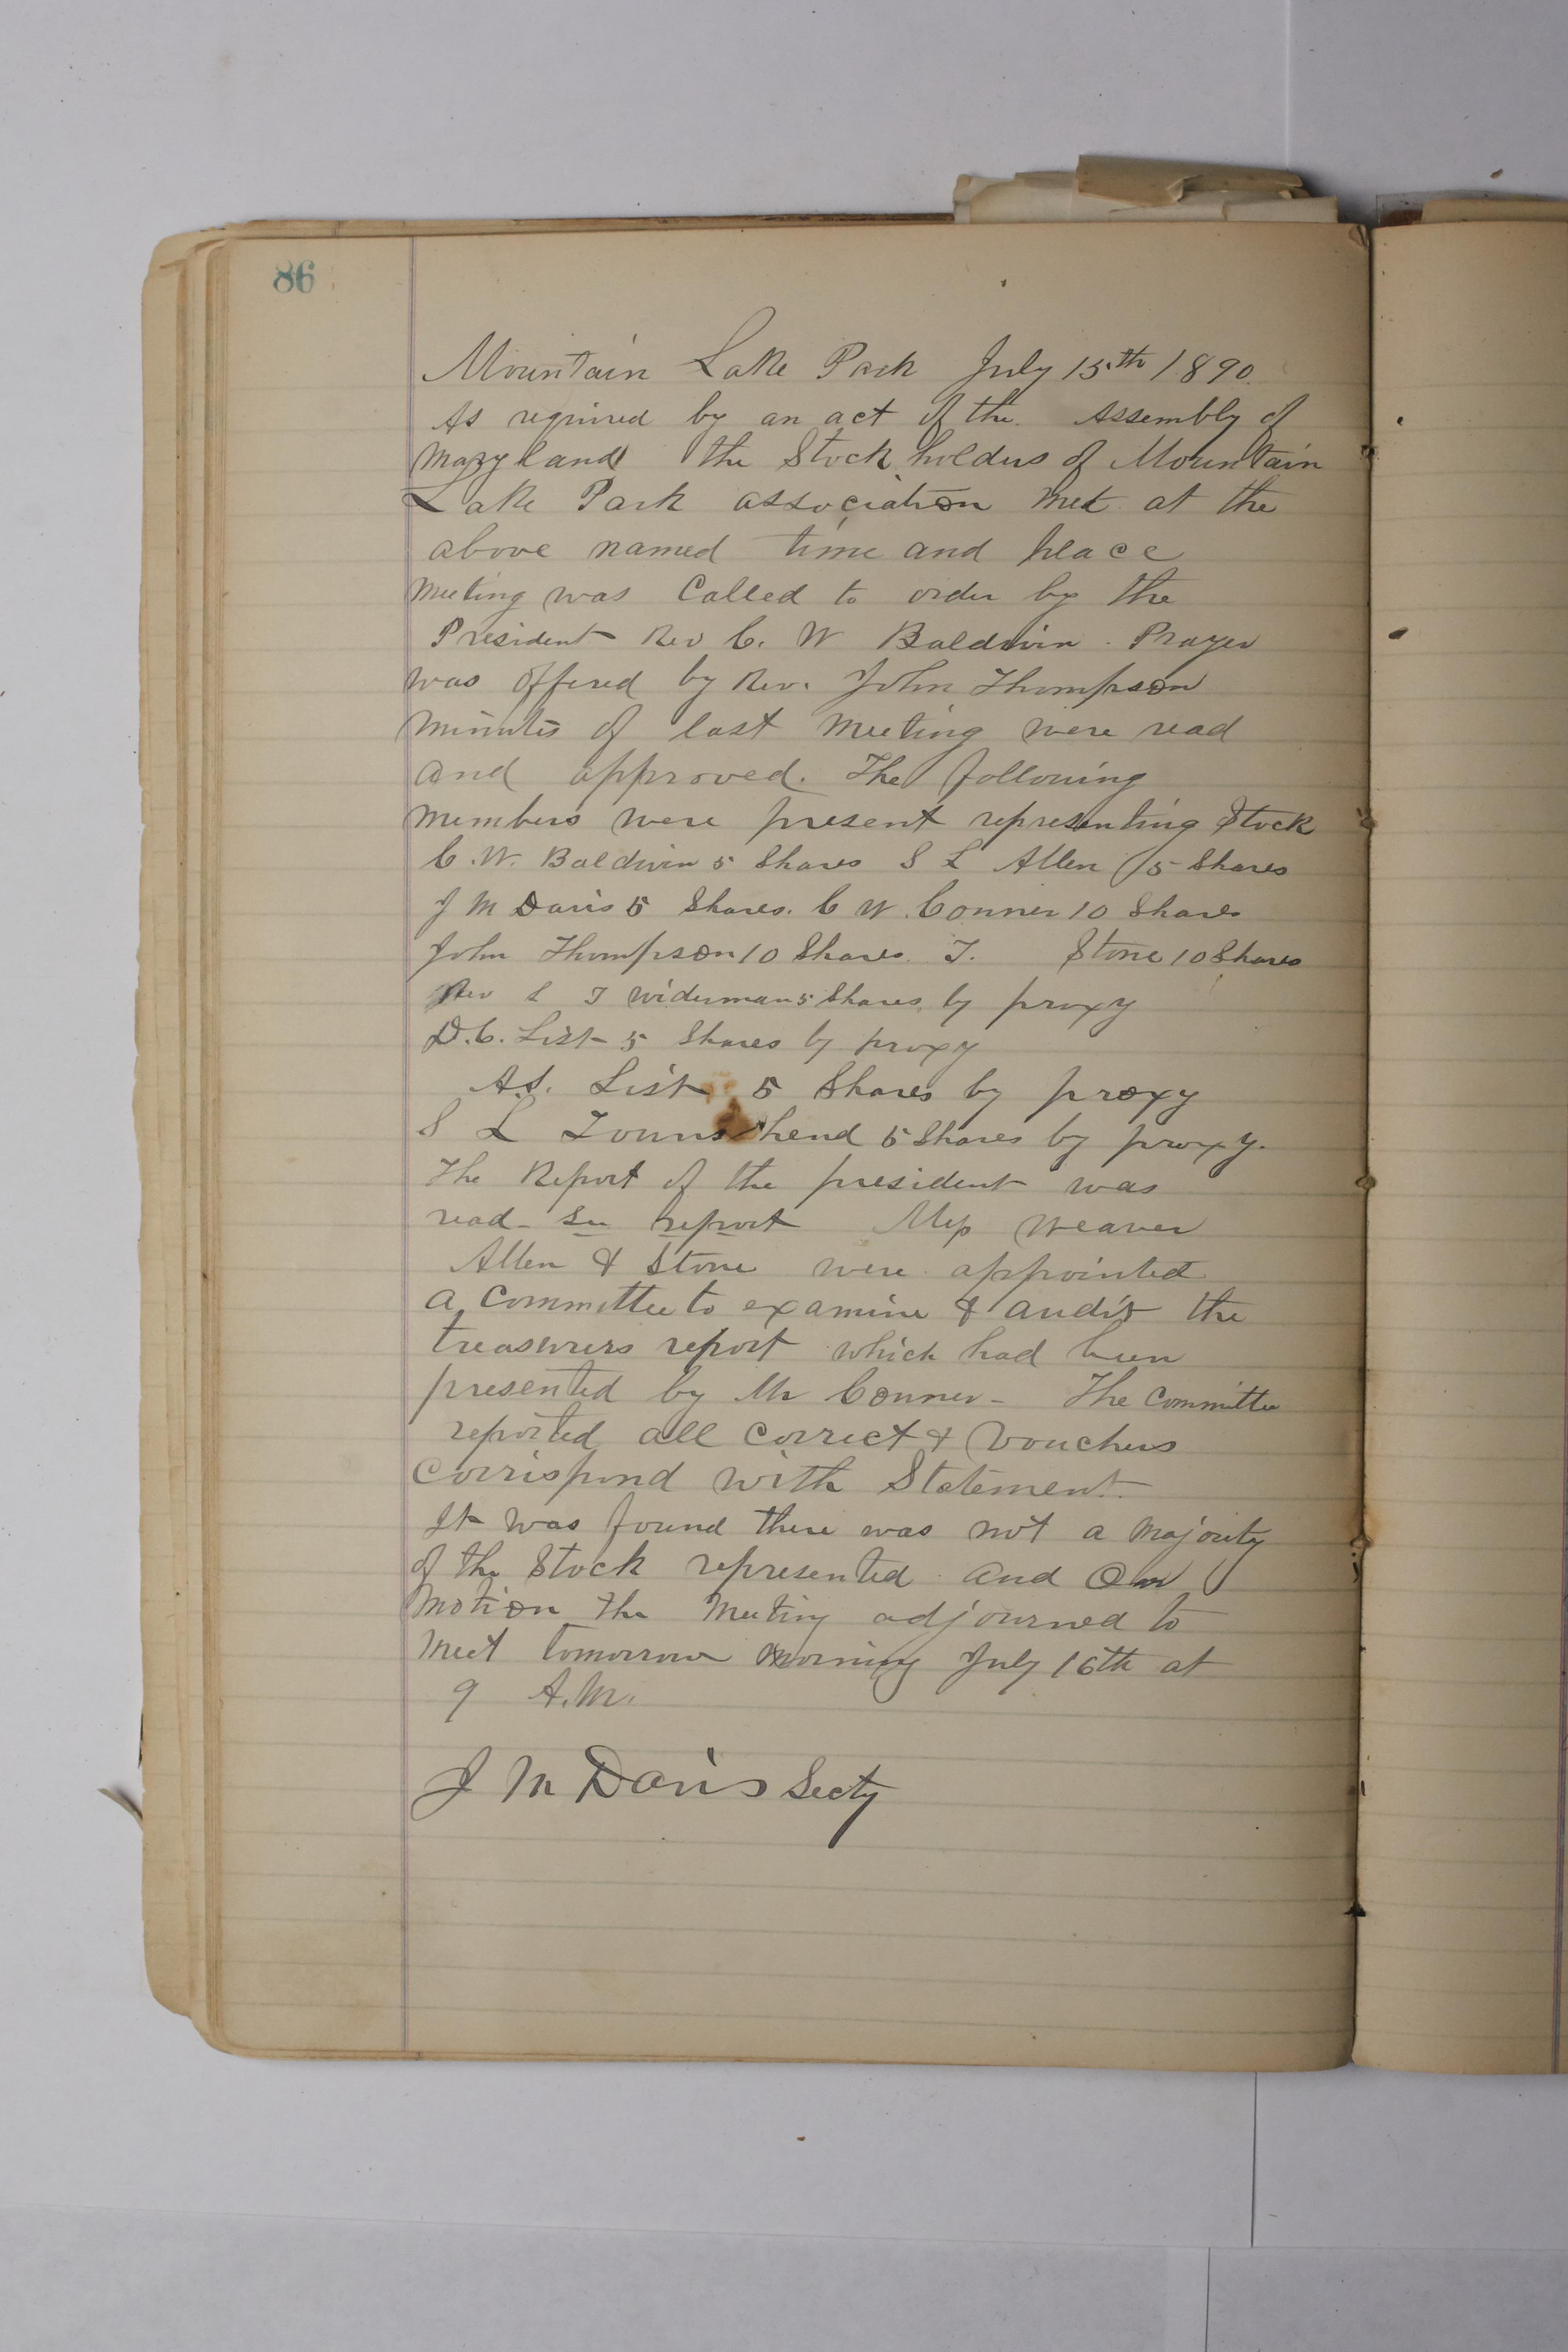 86
Mountain Lake Park July 15th 1890.
As required by an act of the Assembly of
Maryland the Stock holders of Mountain
Lake Park association met at the
above named time and place
Meeting was Called to order by the
President Rev C. W Baldwin. Prayer
was offered by Rev. John Thompson
Minutes of last Meeting were read
and approved. The following
Members were present representing Stock
C. W. Baldwin 5 Shares S L Allen 5 Shares
J M Davis 5 Shares. C W. Conner 10 Shares
John Thompson 10 Shares. T. Stone 10 Shares
Rev L T Widerman 5 Shares, by proxy
D. C. List 5 Shares by proxy
A.S. List 5 Shares by proxy
S L Townshend 5 Shares by proxy.
The Report of the president was
read - See report Mess Weaver
Allen & Stone were appointed
a Committee to examine & audit the
treasurers report which had been
presented by Mr Conner - The Committee
reported all Correct & Vouchers
Corrispond with Statement.
It was found there was not a Majority
of the Stock represented and On
Motion the Meeting adjourned to
Meet tomorrow Morning July 16th at
9 A.M.
J M Davis Secty